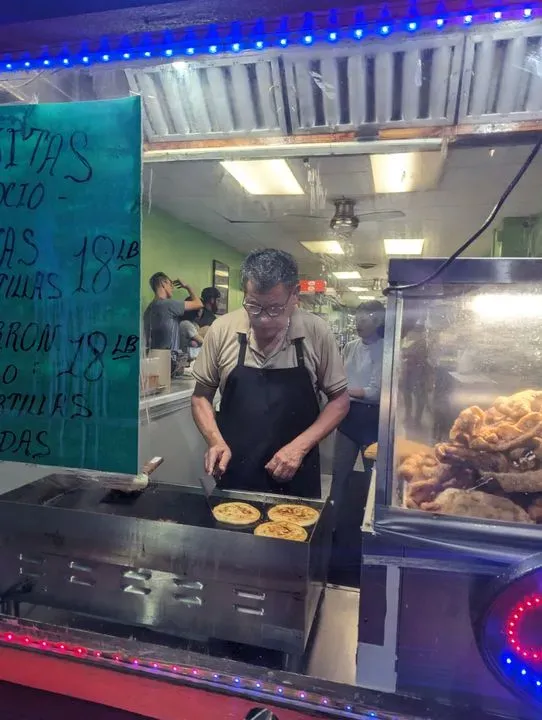 ITAS
OCIO -
TAS
TILLAS 18 LB
RRON
O : 18 LB
RTILLAS
DAS